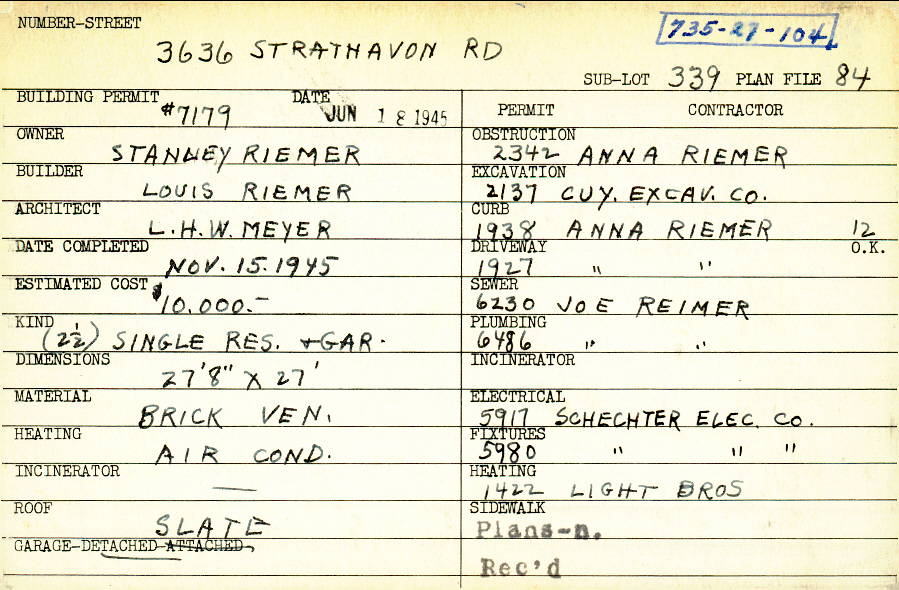 NUMBER-STREET
3636 STRATHAVON RD
735-27-104
SUB-LOT 339 PLAN FILE 84
BUILDING PERMIT #7179 DATE JUN 18 1945
OWNER
STANLEY RIEMER
BUILDER
LOUIS RIEMER
ARCHITECT
L.H.W. MEYER
DATE COMPLETED
NOV. 15. 1945
ESTIMATED COST
$10.000.-
KIND
(2½) SINGLE RES. + GAR.
DIMENSIONS
27'8" X 27'
MATERIAL
BRICK VEN.
HEATING
AIR COND.
INCINERATOR
—
ROOF
SLATE
GARAGE-DETACHED-ATTACHED
PERMIT CONTRACTOR
OBSTRUCTION
2342 ANNA RIEMER
EXCAVATION
2137 CUY. EXCAV. CO.
CURB
1938 ANNA RIEMER 12
DRIVEWAY O.K.
1927 " "
SEWER
6230 JOE REIMER
PLUMBING
6486 " "
INCINERATOR
ELECTRICAL
5917 SCHECHTER ELEC. CO.
FIXTURES
5980 " " "
HEATING
1422 LIGHT BROS
SIDEWALK
Plans-n.
Rec'd